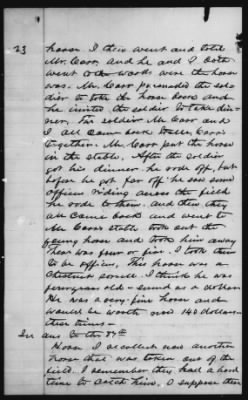 23 horse I then went and told
Mr. Carr, and he and I both
went to the woods were the horse
was. Mr. Carr persuaded the sol-
dier to take the horse home and
he invited the soldier to take din-
ner. The soldier Mr Carr and
I all came back to Mr. Carrs
together. Mr. Carr put the horse
in the stable. After the soldier
got his dinner he rode off, but
before he got far off he saw some
officers riding across the field
he rode to them. And then they
all came back and went to
Mr Carrs stable took out the
young horse and took him away
There was four or five. I took them
to be officers, This horse was a
Chestnut sorrell. I think he was
four years old - sound as a dollar
He was a very fine horse and
would be worth now 140 dollars -
these times -
In ans to the 54th
Horse. I recollect now another
horse that was taken out of the
field. I remember they had a hard
time to catch him. I suppose there